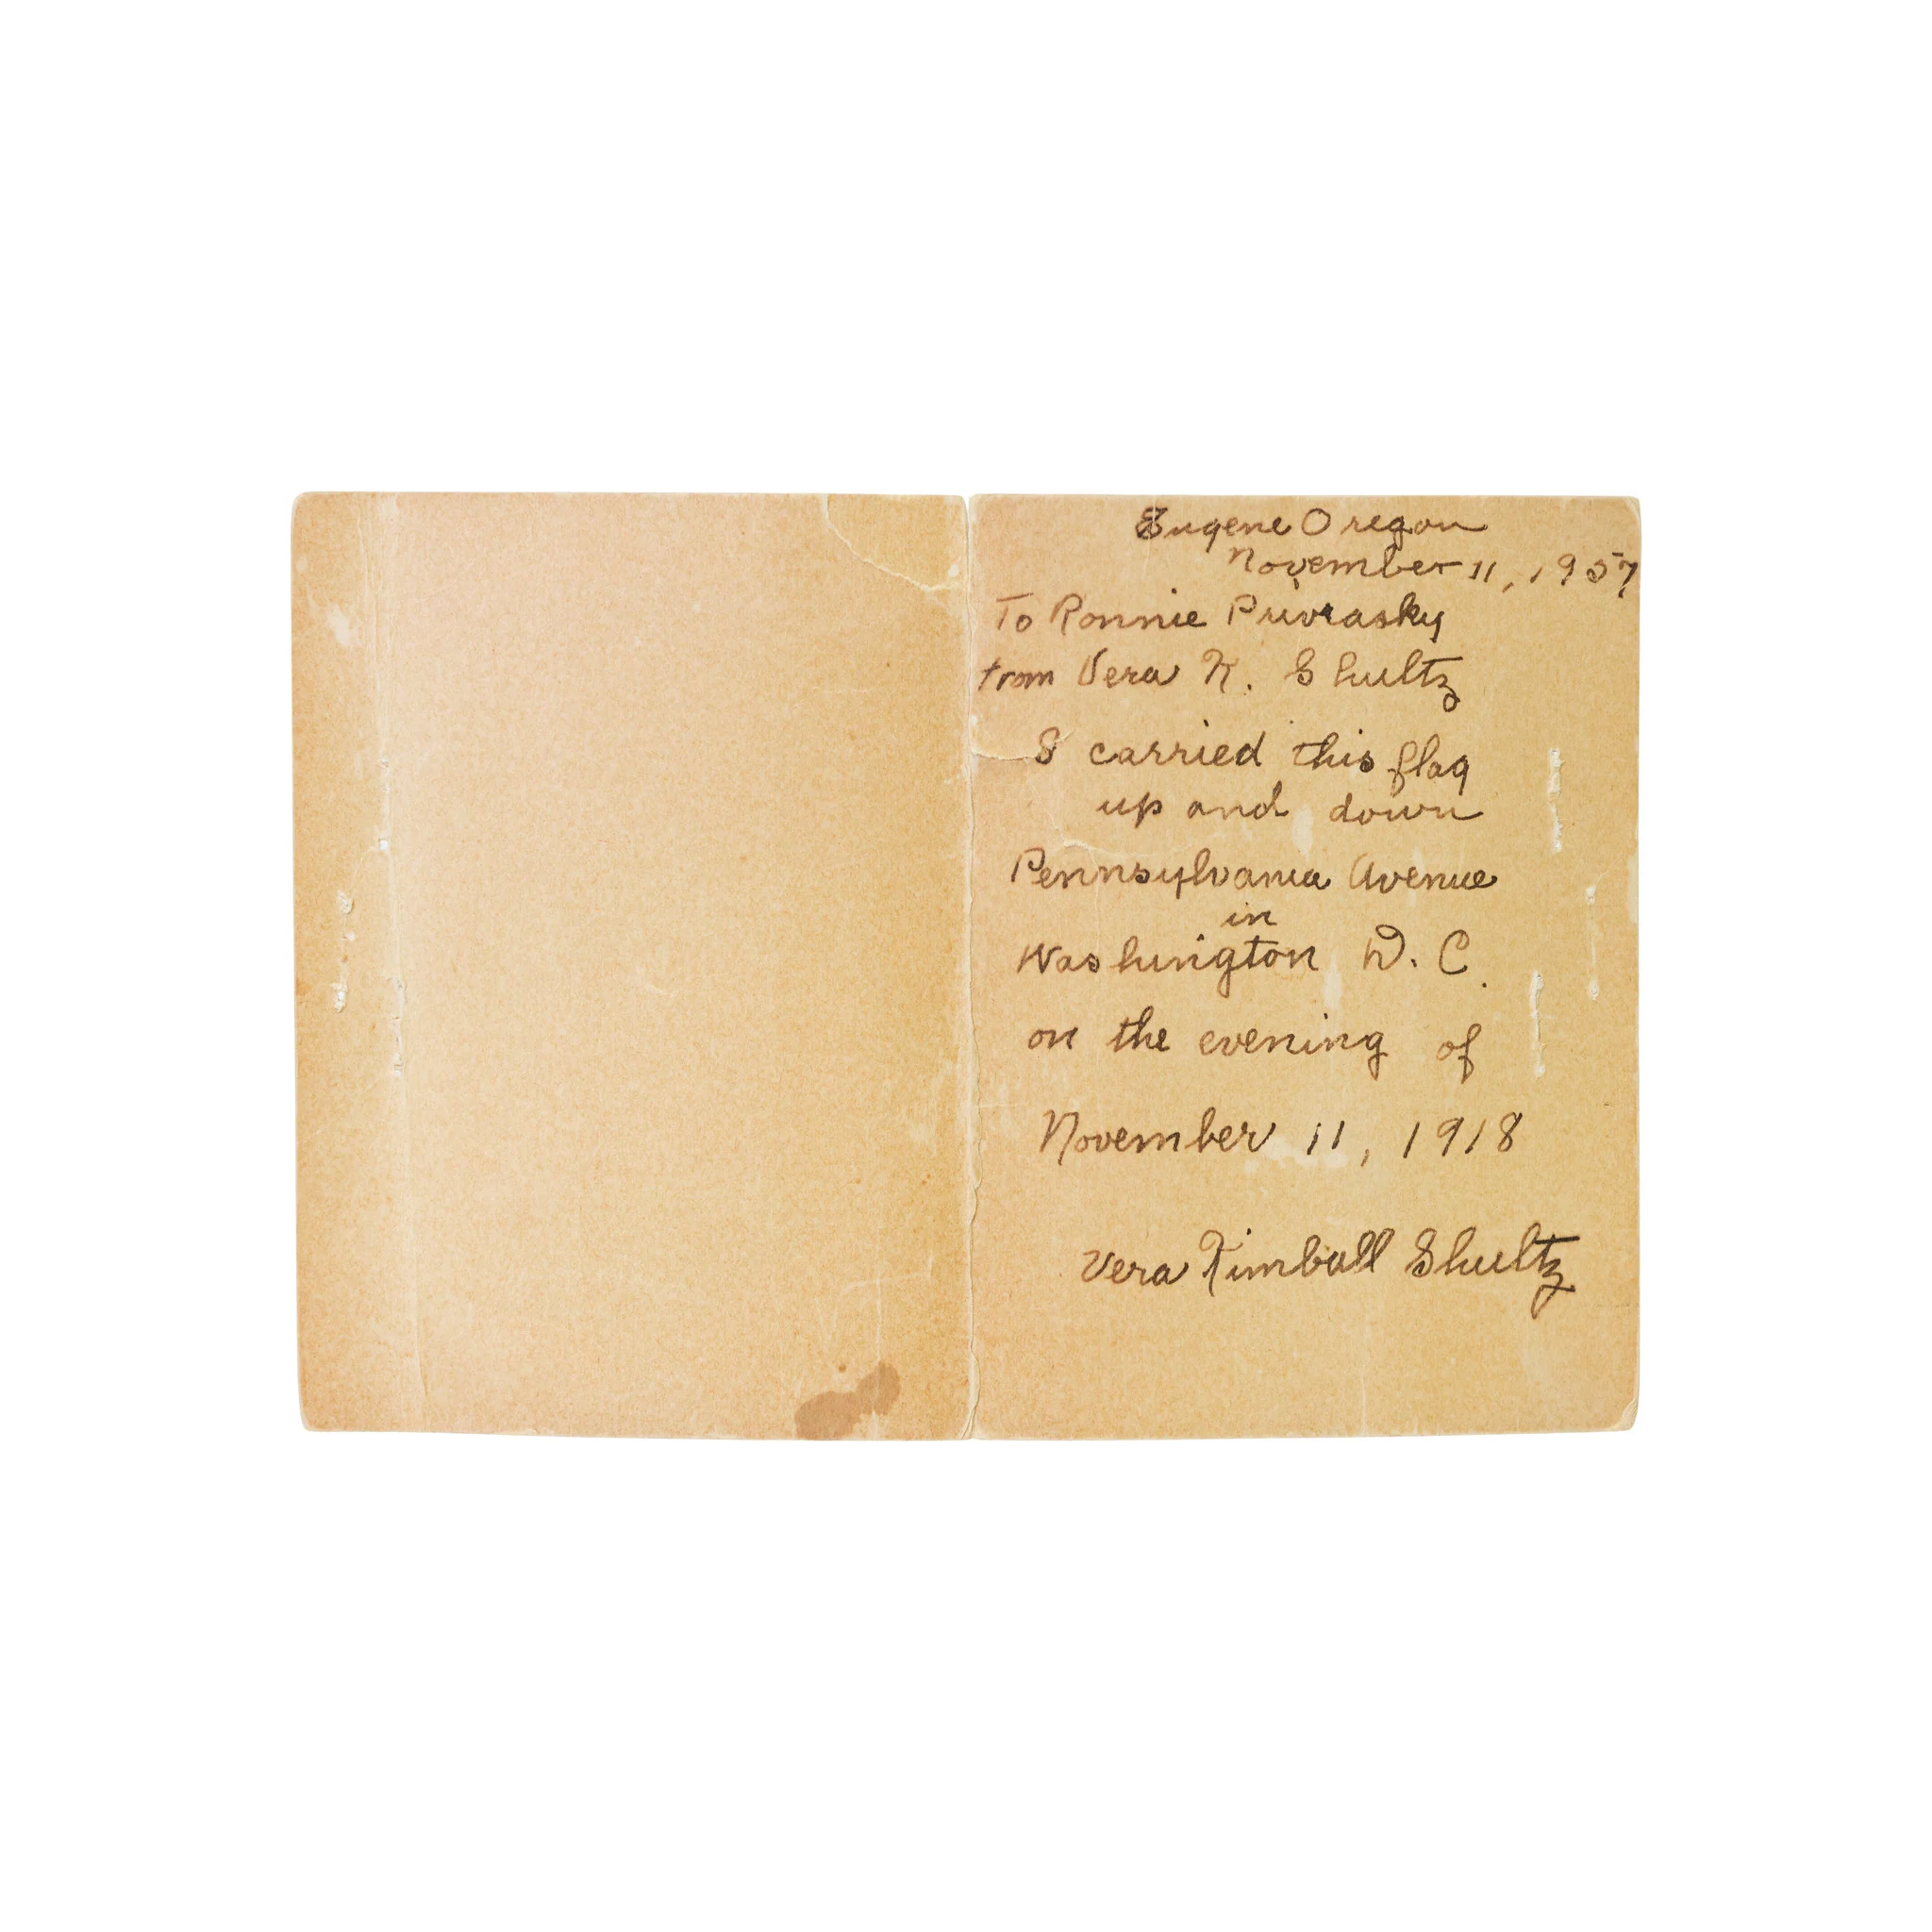 Eugene Oregon
November 11, 1957
To Ronnie Privrasky
from Vera K. Shultz
I carried this flag
up and down
Pennsylvania Avenue
in
Washington D. C.
on the evening of
November 11, 1918
Vera Kimball Shultz